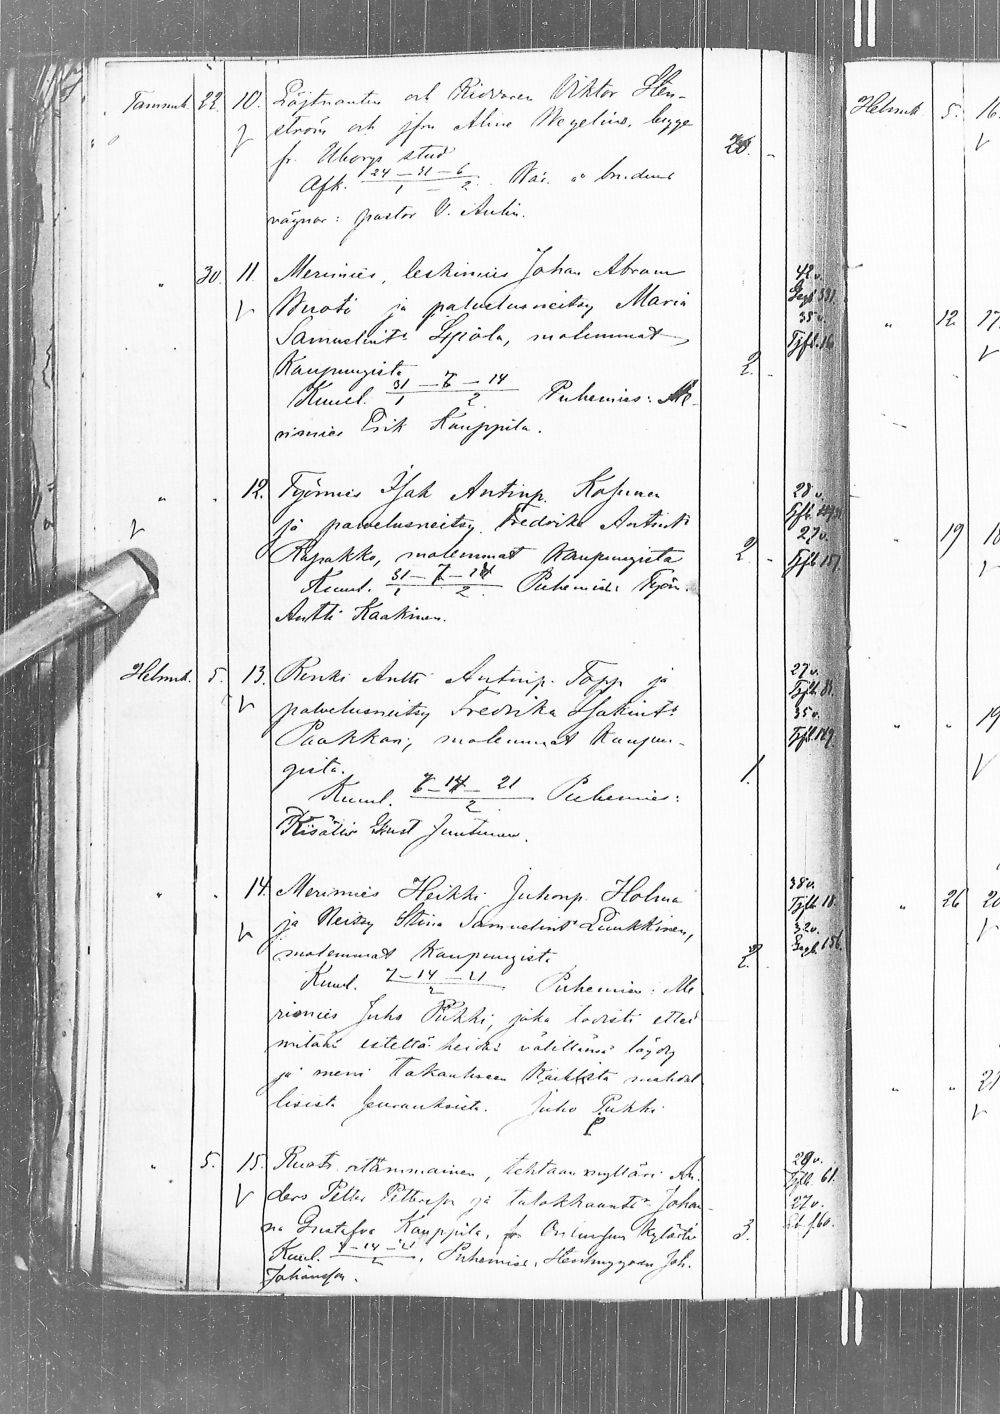 Tammik. 22. 10. Löjtnanten och Riddaren Viktor Sten-
ström och jfru Alina Wegelius, begge
fr. Uborgs stad
Afk. 24 – 31 – 6 / 1 – 2. Å brudens
vägnar: pastor V. Aulin.
20. -
" 30. 11. Merimies, leskimies Johan Abram
Wuoti ja palvelusneitsy Maria
Samuelint: molemmat
Kaupungista
2. -
Kuul. 31 – 7 – 14 / 1 2 Puhemies: Me-
rimies Erik Kauppila.
42 v.
331.
35 v.
Tjfb. 16.
" . 12. Työmies Isak Antinp. Kosunen
ja palvelusneitsy Fredrika Antint:
Rapakko, molemmat Kaupungista
2 -
Kuul. 31 – 7 – 14 / 1 2 Puhemies: Työm.
Antti Kaakinen.
28 v.
Tjfb.
27 v.
Tjfb 157.
Helmik. 5. 13. Renki Antti Antinp. Topp ja
palvelusneitsy Fredrika Isakint:
Paakkari, molemmat Kaupun-
gista.
1.
Kuul. 7 – 14 – 21 / 2 Puhemies:
Kisälli Gust Juntunen.
27 v.
Tjfb. 81.
35 v.
Tjfb. 149.
" . 14. Merimies Heikki Juhonp. Holma
ja Neitsy Stina Samuelint: Luukkinen,
molemmat Kaupungista
2. -
Kuul. 7 – 14 – 21 / 2 Puhemies: Me-
rimies Juho Pukki, joka todisti ettei
mitään estettä heidän välillänsä löydy
ja meni takaukseen kaikista mahdol-
lisista seurauksista. Juho Pukki
P
38 v.
Tjfb 18.
32 v.
156.
" 5. 15. Ruots. alammainen, tehtaan mylläri An-
ders Petter Petterson ja talokkaantr Johan-
na Gustafva Kauppila, fr kylästä
3.
Kuul. 7 – 14 – 21 / 2, Puhemies: Joh.
Johansson.
29 v.
Tjfb. 61.
27 v.
f 60.
Helmik. 5. 16.
" 12 17.
" 19 18
" " 19
" 26 20
" " 21